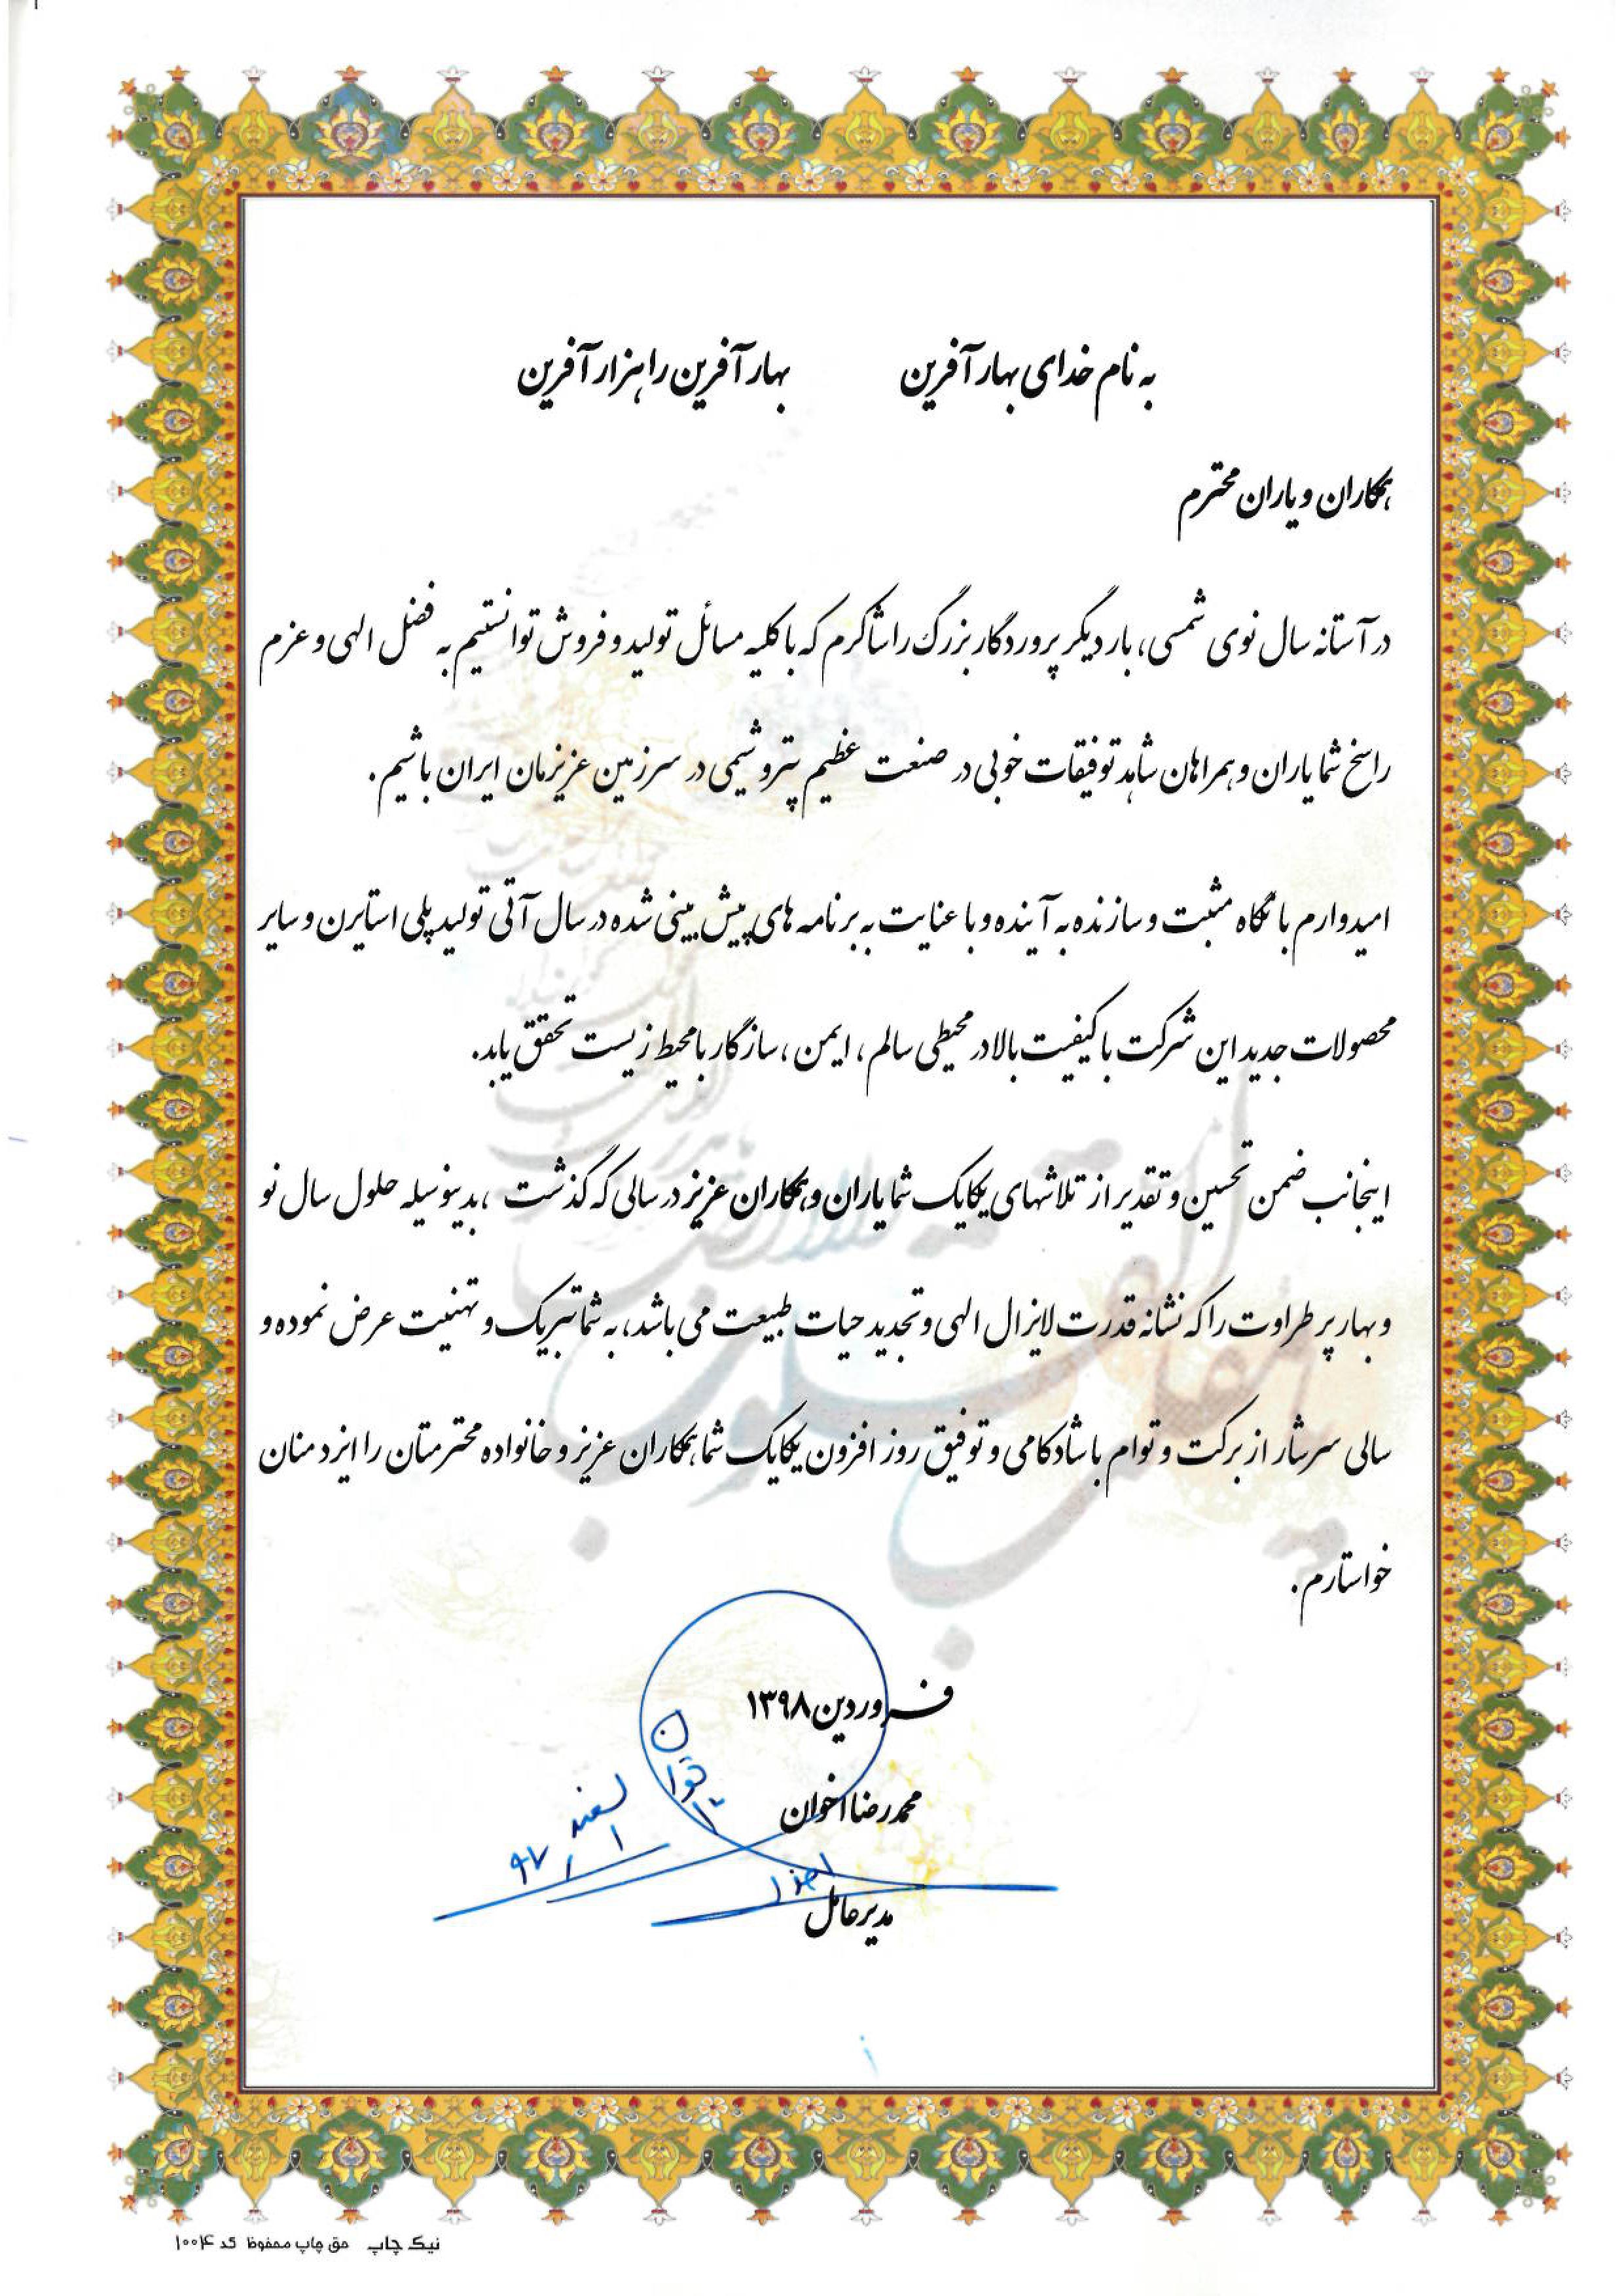 به نام خدای بهار آفرین      بهار آفرین را هزار آفرین
همکاران و یاران محترم
در آستانه سال نوی شمسی، بار دیگر پروردگار بزرگ را شاکرم که با کلیه مسائل تولید و فروش توانستیم به فضل الهی و عزم
راسخ شما یاران و همراهان شاهد توفیقات خوبی در صنعت عظیم پتروشیمی در سرزمین عزیزمان ایران باشیم.
امیدوارم با نگاه مثبت و سازنده به آینده و با عنایت به برنامه های پیش بینی شده در سال آتی تولید پلی استایرن و سایر
محصولات جدید این شرکت با کیفیت بالا در محیطی سالم، ایمن، سازگار با محیط زیست تحقق یابد.
اینجانب ضمن تحسین و تقدیر از تلاشهای یکایک شما یاران و همکاران عزیز در سالی که گذشت ، بدینوسیله حلول سال نو
و بهار پر طراوت را که نشانه قدرت لایزال الهی و تجدید حیات طبیعت می باشد، به شما تبریک و تهنیت عرض نموده و
سالی سرشار از برکت و توام با شادکامی و توفیق روز افزون یکایک شما همکاران عزیز و خانواده محترمتان را ایزد منان
خواستارم.
فروردین ۱۳۹۸
محمدرضا اخوان
اسفند
۹۷
مدیرعامل
نیک چاپ   حق چاپ محفوظ   کد ۱۰۰۴